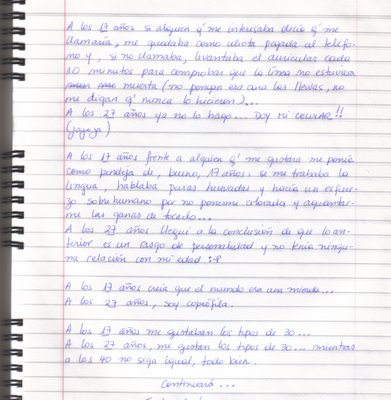 A los 17 años si alguien q' me interesaba decía q' me
llamaría, me quedaba como idiota pegada al teléfo-
no y, si no llamaba, levantaba el auricular cada
10 minutos para comprobar que la línea no estuviera
muerta (no pongan esa cara las llewas, no
me digan q' nunca lo hicieron)...
A los 27 años ya no lo hago... Doy mi celular!!
(jajaja)
A los 17 años frente a alguien q' me gustara me ponía
como pendeja de, bueno, 17 años: se me trababa la
lengua, hablaba puras huevadas y hacía un esfuer-
zo sobrehumano por no ponerme colorada y aguantar-
me las ganas de tocarlo...
A los 27 años llegué a la conclusión de que lo an-
terior es un rasgo de personalidad y no tenía ningu-
na relación con mi edad :-P
A los 17 años creía que el mundo era una mierda...
A los 27 años, soy coprófila.
A los 17 años me gustaban los tipos de 30...
A los 27 años, me gustan los tipos de 30... mientras
a los 40 no siga igual, todo bien.
Continuará...